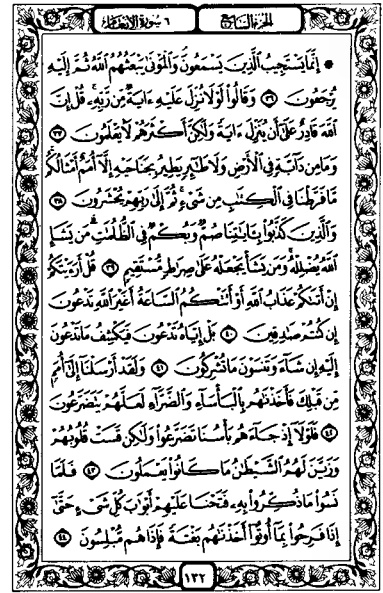 الجزء السابع ٦ سورة الأنعام
۞ إِنَّمَا يَسْتَجِيبُ ٱلَّذِينَ يَسْمَعُونَ وَٱلْمَوْتَىٰ يَبْعَثُهُمُ ٱللَّهُ ثُمَّ إِلَيْهِ
يُرْجَعُونَ ٣٦ وَقَالُوا۟ لَوْلَا نُزِّلَ عَلَيْهِ ءَايَةٌ مِّن رَّبِّهِۦ قُلْ إِنَّ
ٱللَّهَ قَادِرٌ عَلَىٰٓ أَن يُنَزِّلَ ءَايَةً وَلَٰكِنَّ أَكْثَرَهُمْ لَا يَعْلَمُونَ ٣٧
وَمَا مِن دَآبَّةٍ فِى ٱلْأَرْضِ وَلَا طَٰٓئِرٍ يَطِيرُ بِجَنَاحَيْهِ إِلَّآ أُمَمٌ أَمْثَالُكُم
مَّا فَرَّطْنَا فِى ٱلْكِتَٰبِ مِن شَىْءٍ ثُمَّ إِلَىٰ رَبِّهِمْ يُحْشَرُونَ ٣٨
وَٱلَّذِينَ كَذَّبُوا۟ بِـَٔايَٰتِنَا صُمٌّ وَبُكْمٌ فِى ٱلظُّلُمَٰتِ مَن يَشَإِ
ٱللَّهُ يُضْلِلْهُ وَمَن يَشَأْ يَجْعَلْهُ عَلَىٰ صِرَٰطٍ مُّسْتَقِيمٍ ٣٩ قُلْ أَرَءَيْتَكُمْ
إِنْ أَتَىٰكُمْ عَذَابُ ٱللَّهِ أَوْ أَتَتْكُمُ ٱلسَّاعَةُ أَغَيْرَ ٱللَّهِ تَدْعُونَ
إِن كُنتُمْ صَٰدِقِينَ ٤٠ بَلْ إِيَّاهُ تَدْعُونَ فَيَكْشِفُ مَا تَدْعُونَ
إِلَيْهِ إِن شَآءَ وَتَنسَوْنَ مَا تُشْرِكُونَ ٤١ وَلَقَدْ أَرْسَلْنَآ إِلَىٰٓ أُمَمٍ
مِّن قَبْلِكَ فَأَخَذْنَٰهُم بِٱلْبَأْسَآءِ وَٱلضَّرَّآءِ لَعَلَّهُمْ يَتَضَرَّعُونَ
٤٢ فَلَوْلَآ إِذْ جَآءَهُم بَأْسُنَا تَضَرَّعُوا۟ وَلَٰكِن قَسَتْ قُلُوبُهُمْ
وَزَيَّنَ لَهُمُ ٱلشَّيْطَٰنُ مَا كَانُوا۟ يَعْمَلُونَ ٤٣ فَلَمَّا
نَسُوا۟ مَا ذُكِّرُوا۟ بِهِۦ فَتَحْنَا عَلَيْهِمْ أَبْوَٰبَ كُلِّ شَىْءٍ حَتَّىٰٓ
إِذَا فَرِحُوا۟ بِمَآ أُوتُوٓا۟ أَخَذْنَٰهُم بَغْتَةً فَإِذَا هُم مُّبْلِسُونَ ٤٤
١٣٢